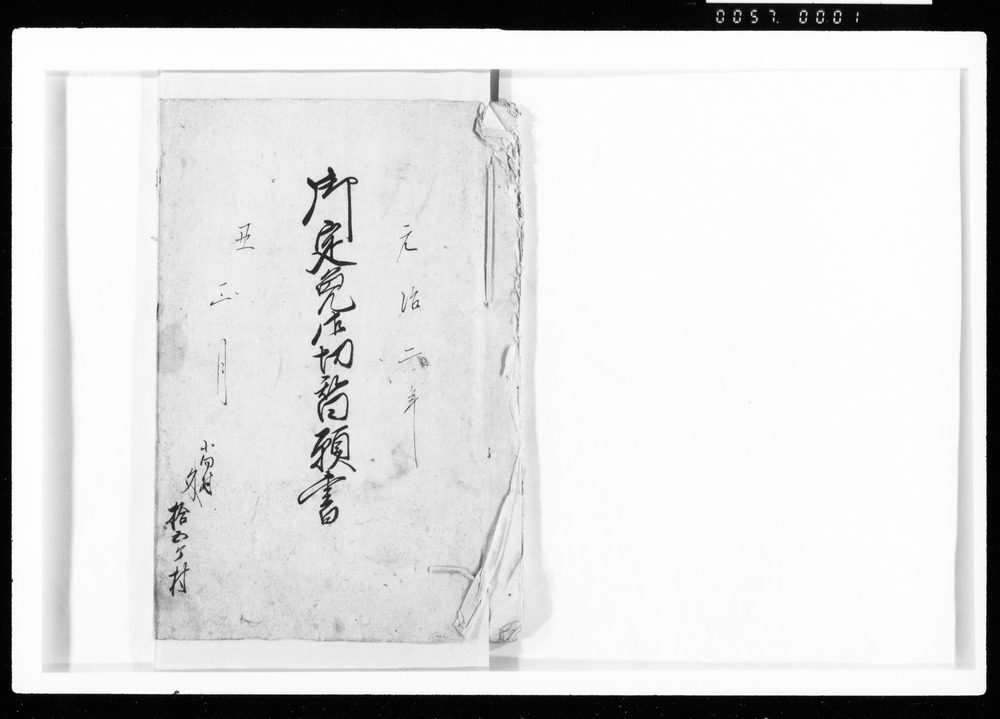 0057. 0001
元治二年
御定免御切替願書
丑三月
小向村
外
拾五ケ村